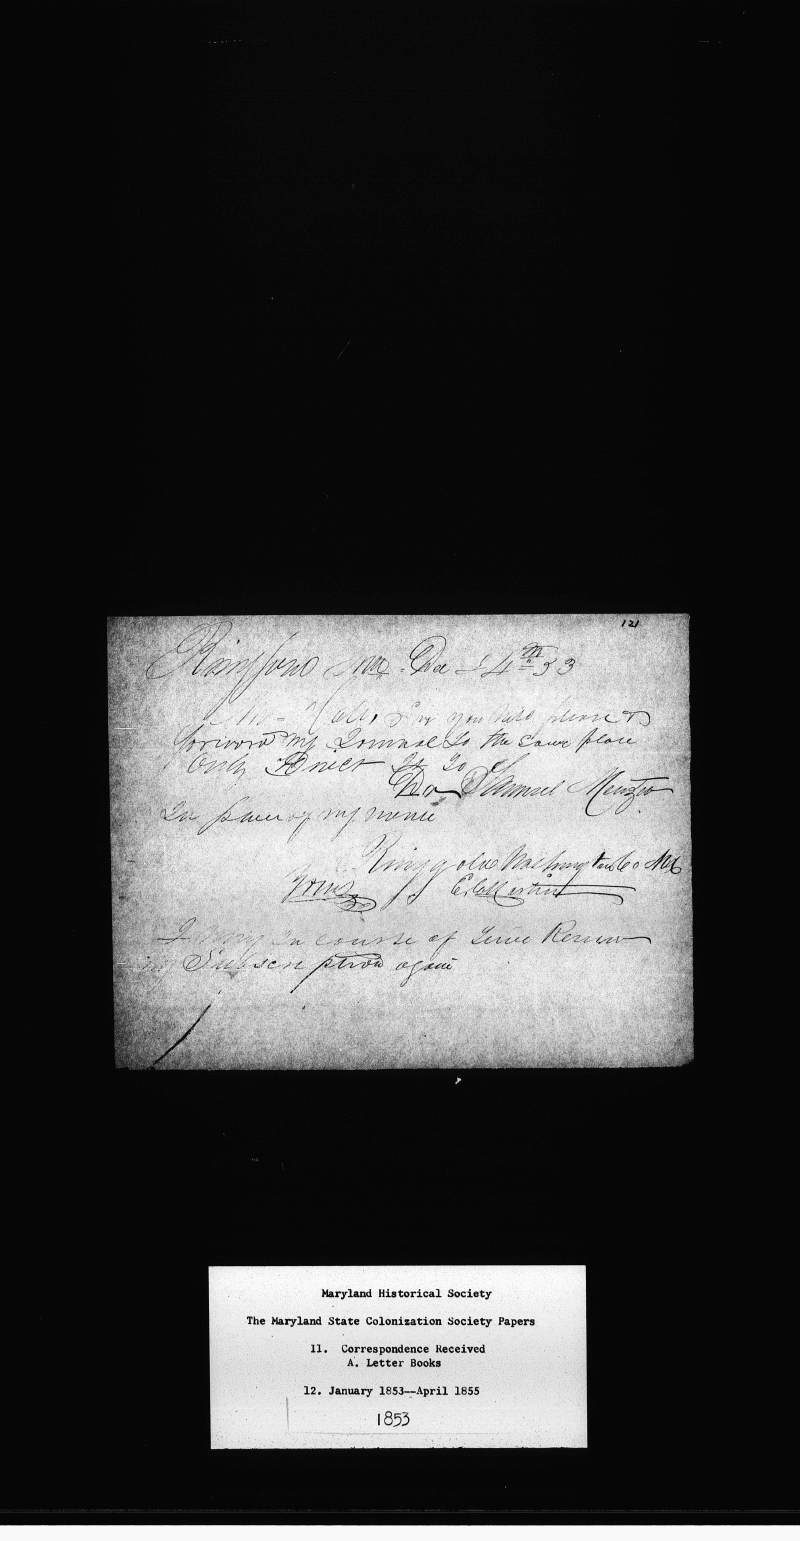 121
Md. De 4th 53
Sir you will please to
forward my Journal to the same place
Only Direct it to
Dr Samuel
In place of my name
Ringgold Washington Co Md
Yours
I may in course of time Renew
my Subscription again
Maryland Historical Society
The Maryland State Colonization Society Papers
11. Correspondence Received
A. Letter Books
12. January 1853--April 1855
1853